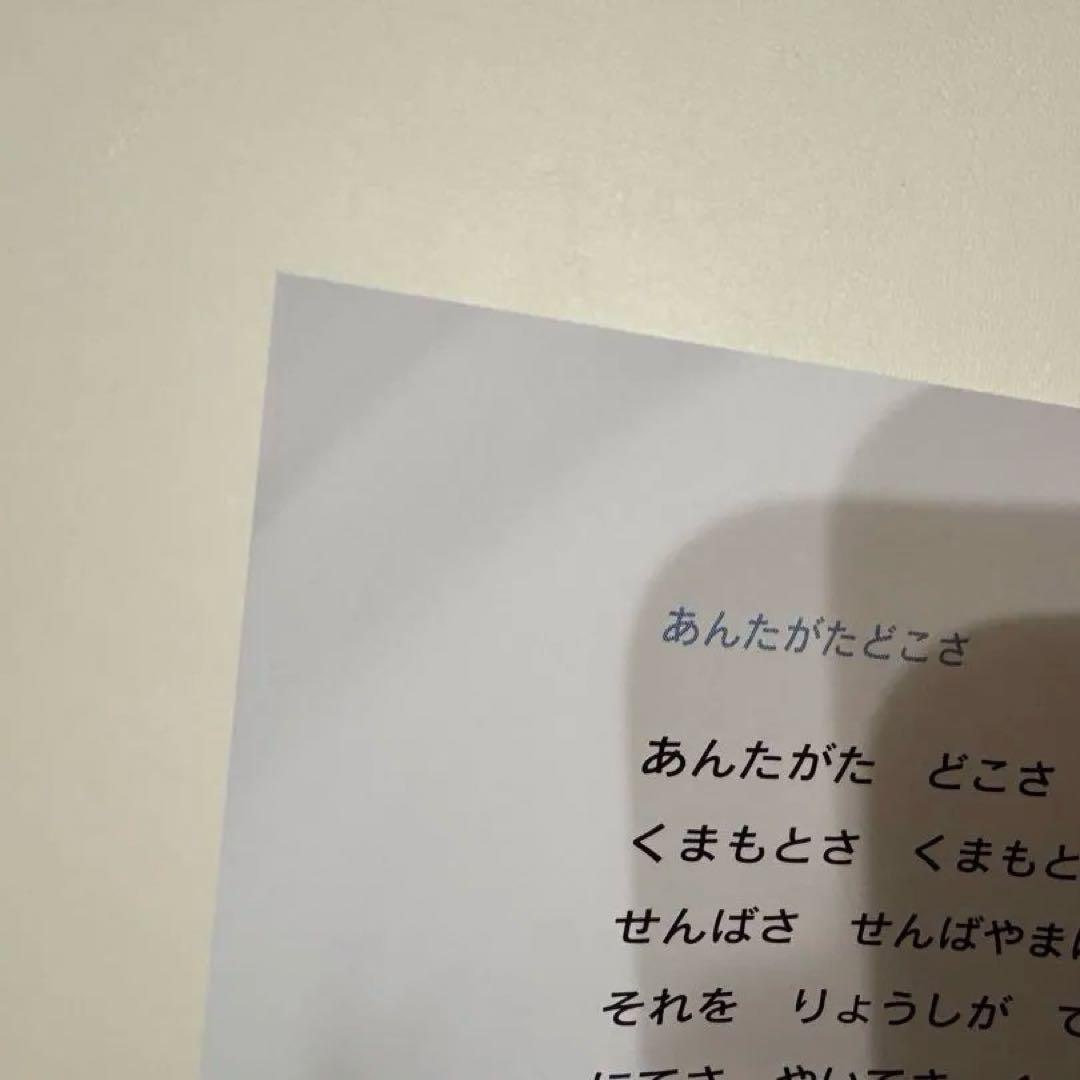 あんたがたどこさ
あんたがた　どこさ
くまもとさ　くまもと
せんばさ　せんばやま
それを　りょうしが
にてさ　やいてさ